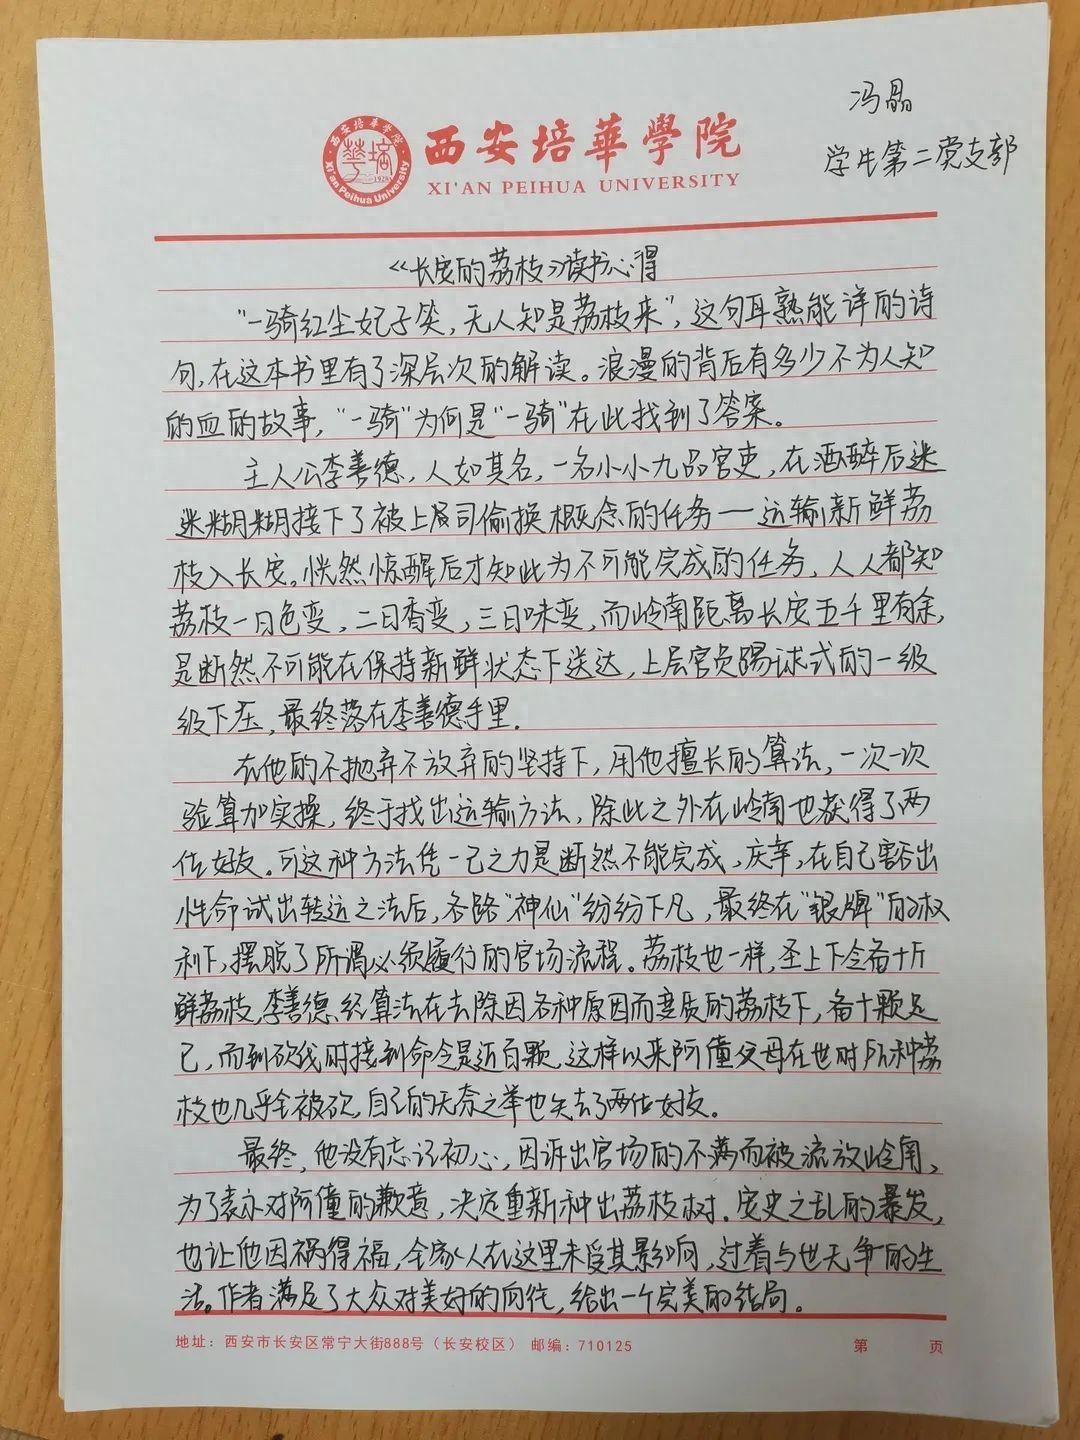 冯晶
学生第二党支部
西安培華學院
XI'AN PEIHUA UNIVERSITY
西安培華学院
Xi'an Peihua University
1928
《长安的荔枝》读书心得
“一骑红尘妃子笑,无人知是荔枝来”,这句耳熟能详的诗
句,在这本书里有了深层次的解读。浪漫的背后有多少不为人知
的血的故事,“一骑”为何是“一骑”在此找到了答案。
主人公李善德,人如其名,一名小小九品官吏,在酒醉后迷
迷糊糊接下了被上层司偷换概念的任务——运输新鲜荔
枝入长安。恍然惊醒后才知此为不可能完成的任务,人人都知
荔枝一日色变,二日香变,三日味变,而岭南距离长安五千里有余,
是断然不可能在保持新鲜状态下送达,上层官员踢球式的一级
级下压,最终落在李善德手里.
在他的不抛弃不放弃的坚持下,用他擅长的算法,一次一次
验算加实操,终于找出运输方法,除此之外在岭南也获得了两
位好友。可这种方法凭一己之力是断然不能完成,庆幸,在自己豁出
性命试出转运之法后,各路“神仙”纷纷下凡,最终在“银牌”的权
利下,摆脱了所谓必须履行的官场流程。荔枝也一样,圣上下令备十斤
鲜荔枝,李善德经算法在去除因各种原因而变质的荔枝下,备十颗足
已,而到砍伐时接到命令是近百颗,这样以来阿僮父母在世时所种荔
枝也几乎全被砍,自己的无奈之举也失去了两位好友。
最终,他没有忘记初心,因诉出官场的不满而被流放岭南,
为了表示对阿僮的歉意,决定重新种出荔枝树.安史之乱的暴发,
也让他因祸得福,全家人在这里未受其影响,过着与世无争的生
活。作者满足了大众对美好的向往,给出一个完美的结局。
地址:西安市长安区常宁大街888号(长安校区) 邮编:710125 第 页